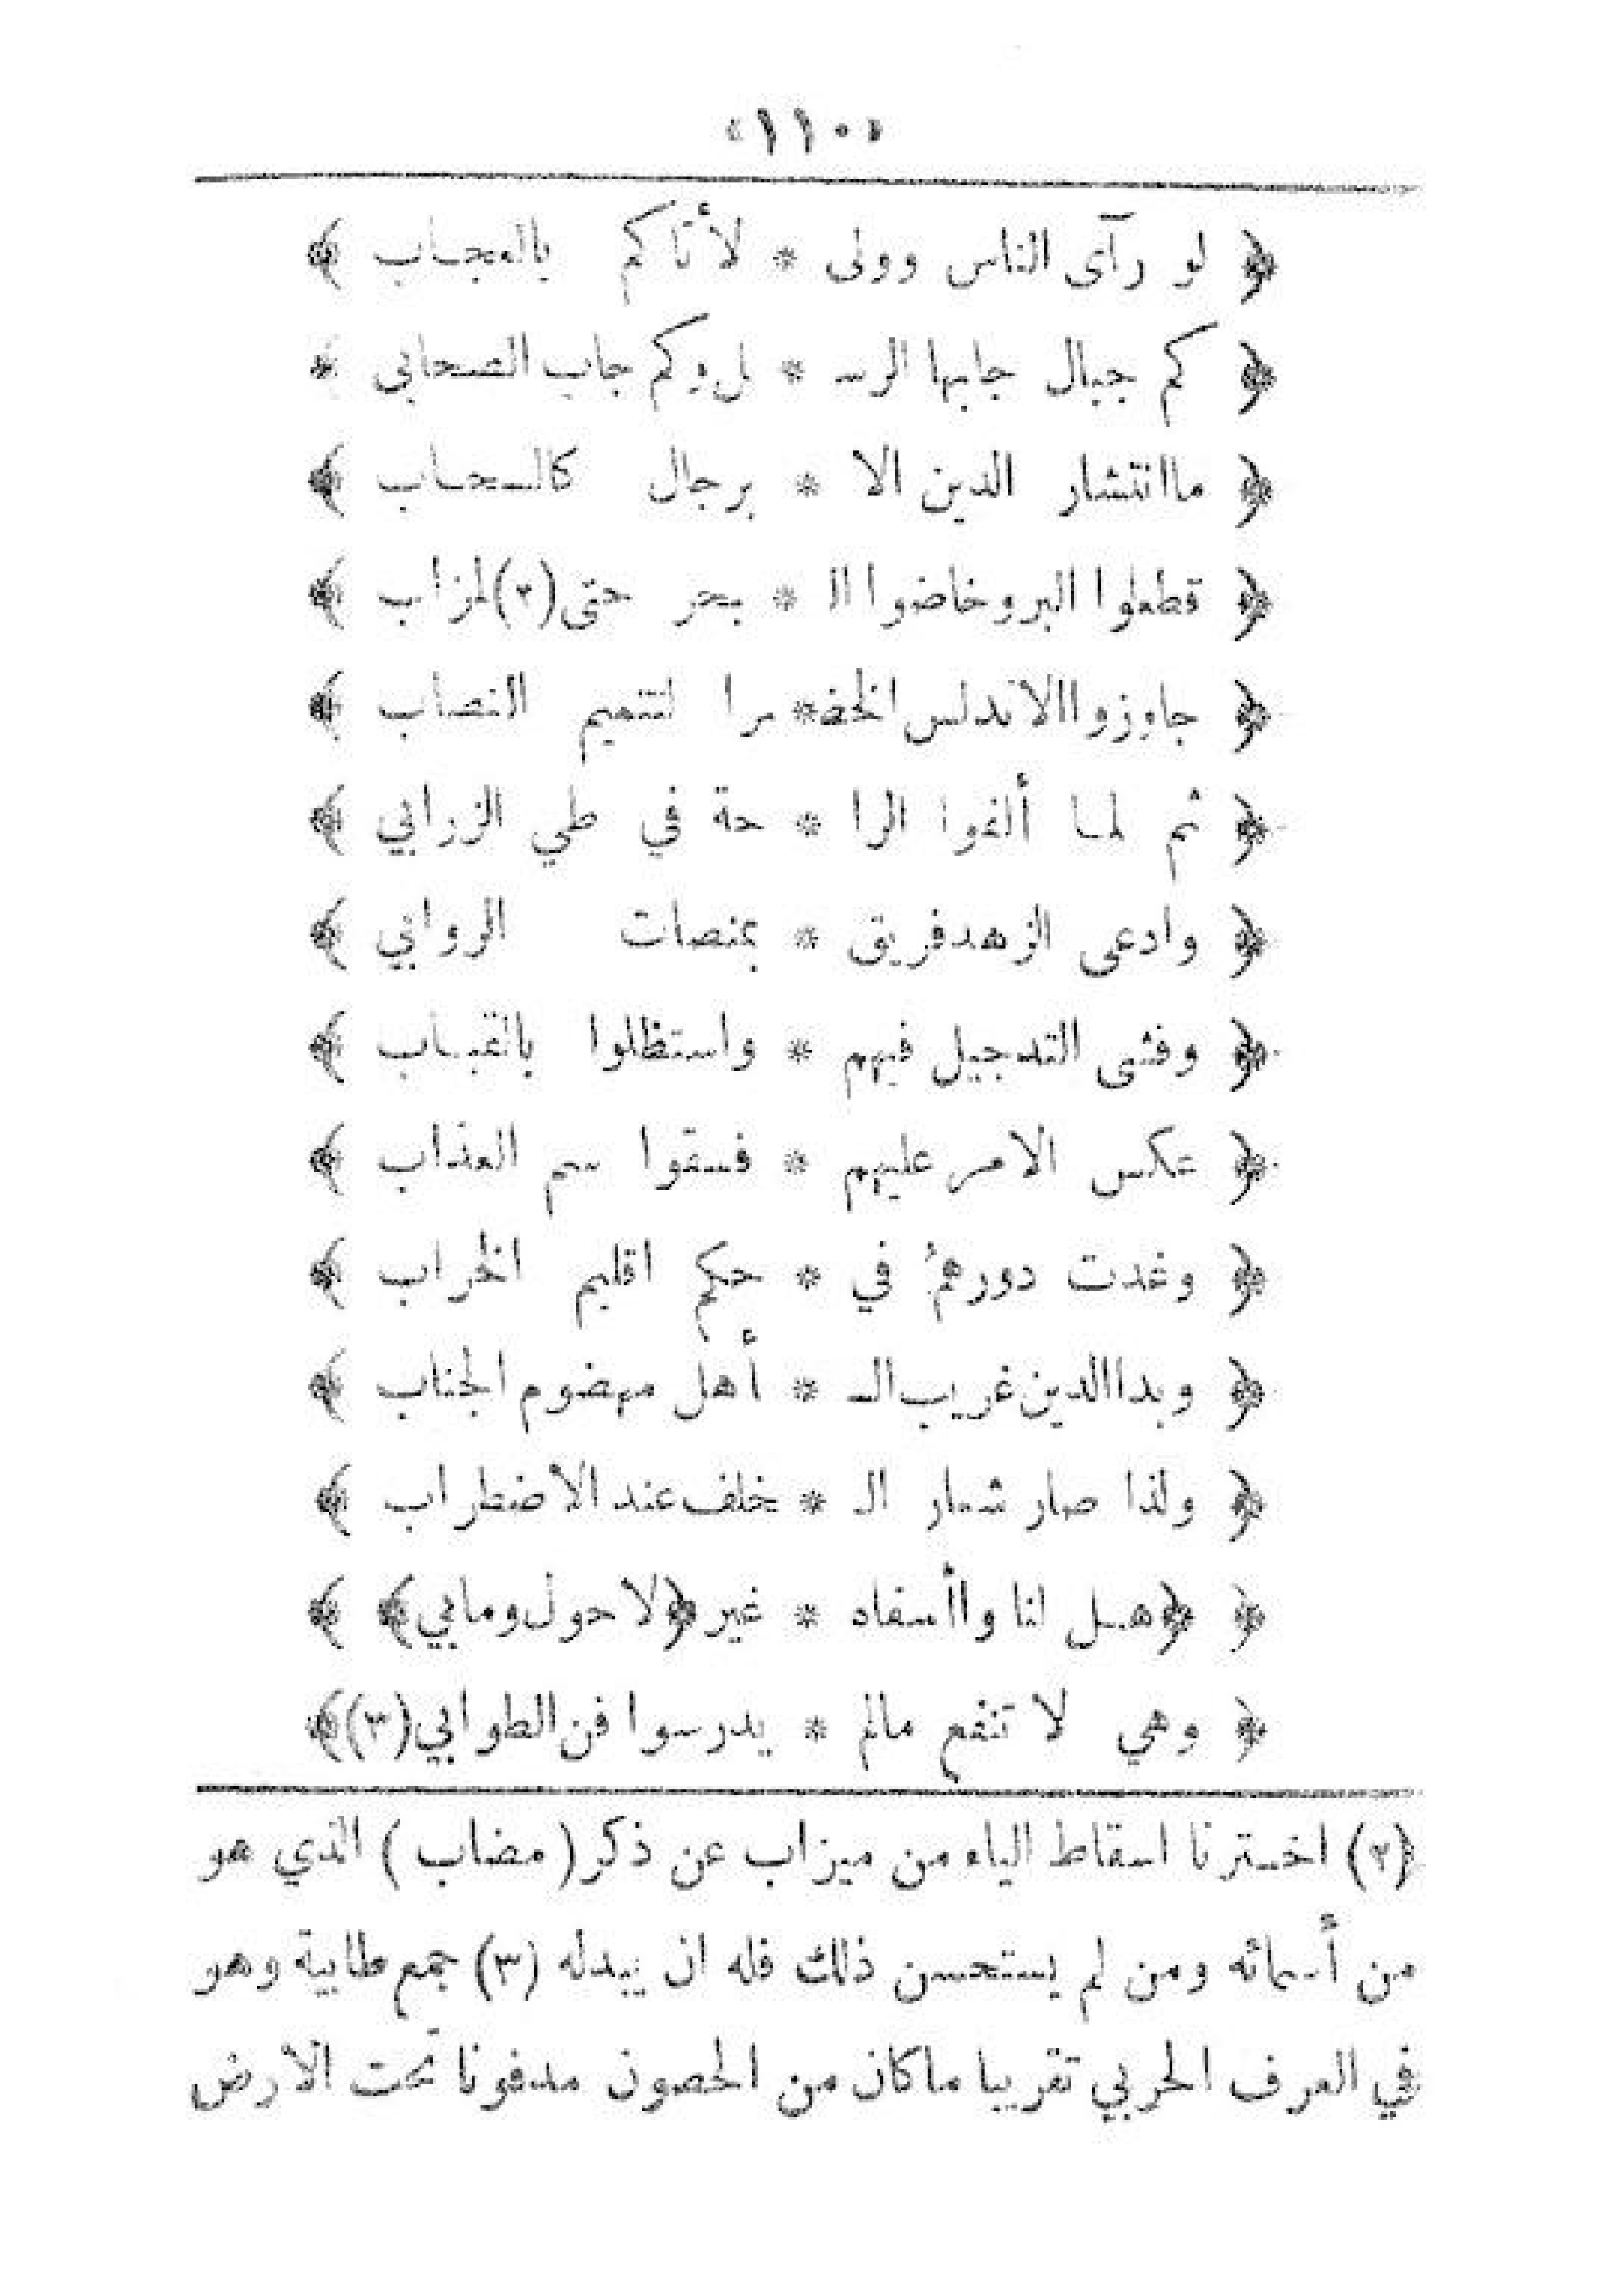 «١١٠»
﴿ لو رآى الناس وولى * لأتاكم بالعجاب ﴾
﴿ كم جبال جابها الرسـ * ل وكم جاب الصحابى ﴾
﴿ ماانتشار الدين الا * برجال كالسحاب ﴾
﴿ قطعوا البر وخاضوا ال * بحر حتى (٢) لمزاب ﴾
﴿ جاوزوا الاندلس الخضـ * را لتتميم النصاب ﴾
﴿ ثم لما ألفوا الرا * حة في طي الزرابي ﴾
﴿ وادعى الزهد فريق * بمنصات الروابي ﴾
﴿ وفشى التدجيل فيهم * واستظلوا بالقباب ﴾
﴿ عكس الامر عليهم * فسقوا سم العذاب ﴾
﴿ وغدت دورهمُ في * حكم اقليم الخراب ﴾
﴿ وبدا الدين غريب الـ * أهل مهضوم الجناب ﴾
﴿ ولذا صار شعار ال * خلف عند الاضطراب ﴾
﴿ ﴿هل لنا واأسفاه * غير ﴿لا حول ومابي﴾ ﴾
﴿ وهي لا تنفع مالم * يدرسوا فن الطوابي (٣) ﴾
(٢) اخترنا اسقاط الياء من ميزاب عن ذكر ( مضاب ) الذي هو
من أسمائه ومن لم يستحسن ذلك فله ان يبدله (٣) جمع طابية وهو
في العرف الحربي تقريبا ماكان من الحصون مدفونا تحت الارض